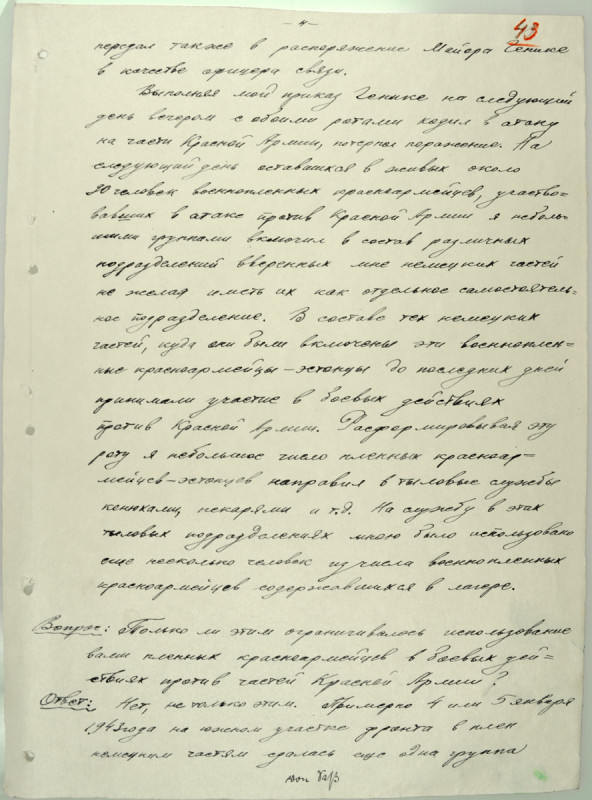 – 4 –
43
передал также в распоряжение Майора Генике
в качестве офицера связи.
Выполняя мой приказ Генике на следующий
день вечером с обоими ротами ходил в атаку
на части Красной Армии, потерпел поражение. На
следующий день оставшихся в живых около
20 человек военнопленных красноармейцев, участво-
вавших в атаке против Красной Армии я неболь-
шими группами включил в состав различных
подразделений вверенных мне немецких частей
не желая иметь их как отдельное самостоятель-
ное подразделение. В составе тех немецких
частей, куда они были включены эти военноплен-
ные красноармейцы-эстонцы до последних дней
принимали участие в боевых действиях
против Красной Армии. Расформировывая эту
роту я небольшое число пленных красноар-
мейцев-эстонцев направил в тыловые службы
конюхами, пекарями и т.д. На службу в этих
тыловых подразделениях мною было использовано
еще несколько человек из числа военнопленных
красноармейцев содержавшихся в лагере.
Вопрос: Только ли этим ограничивалось использование
вами пленных красноармейцев в боевых дей-
ствиях против частей Красной Армии?
Ответ: Нет, не только этим. Примерно 4 или 5 января
1943 года на южном участке фронта в плен
немецким частям сдалась еще одна группа